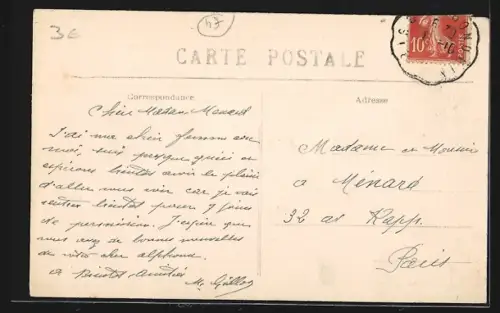 3e
57
CARTE POSTALE
10
Correspondance
Adresse
Chère Madame Menard
J'ai ma chère femme avec
moi, suis presque guéri et
espérons bientôt avoir le plaisir
d'aller vous voir car je vais
rentrer bientôt pour 7 jours
de permission. J'espère que
vous avez de bonnes nouvelles
de votre cher alphonse.
a Bientôt amitiés
Madame et Monsieur
a Ménard
32 av Rapp.
Paris